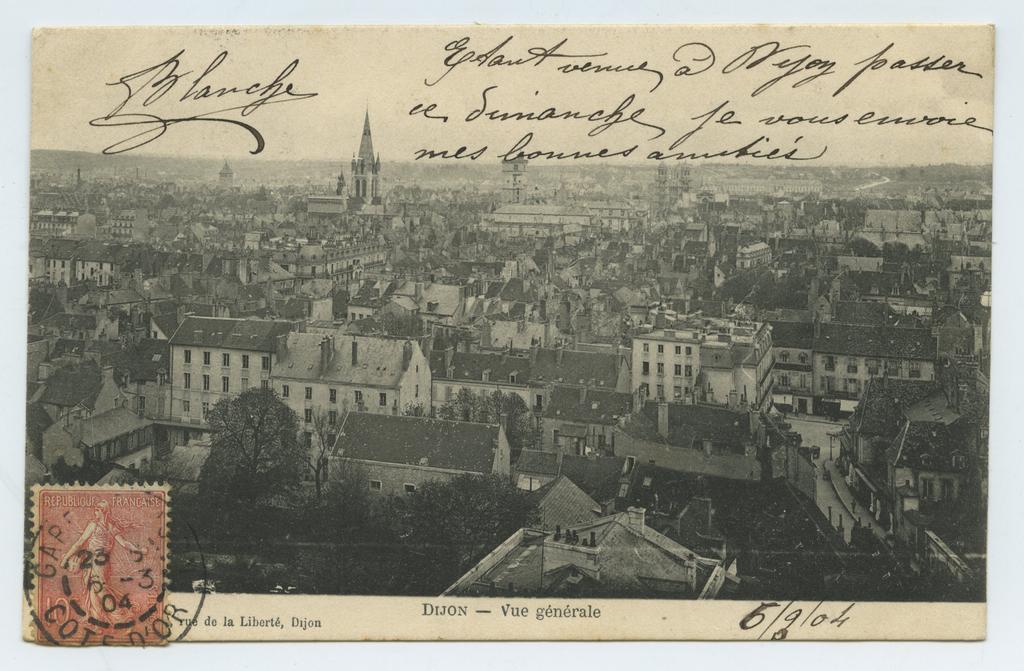 Blanche
Etant venue à Dijon passer
ce dimanche je vous envoie
mes bonnes amitiés
REPUBLIQUE FRANÇAISE
GARE
23
-3
04
COTE D'OR
rue de la Liberté, Dijon
DIJON — Vue générale
6/9/04